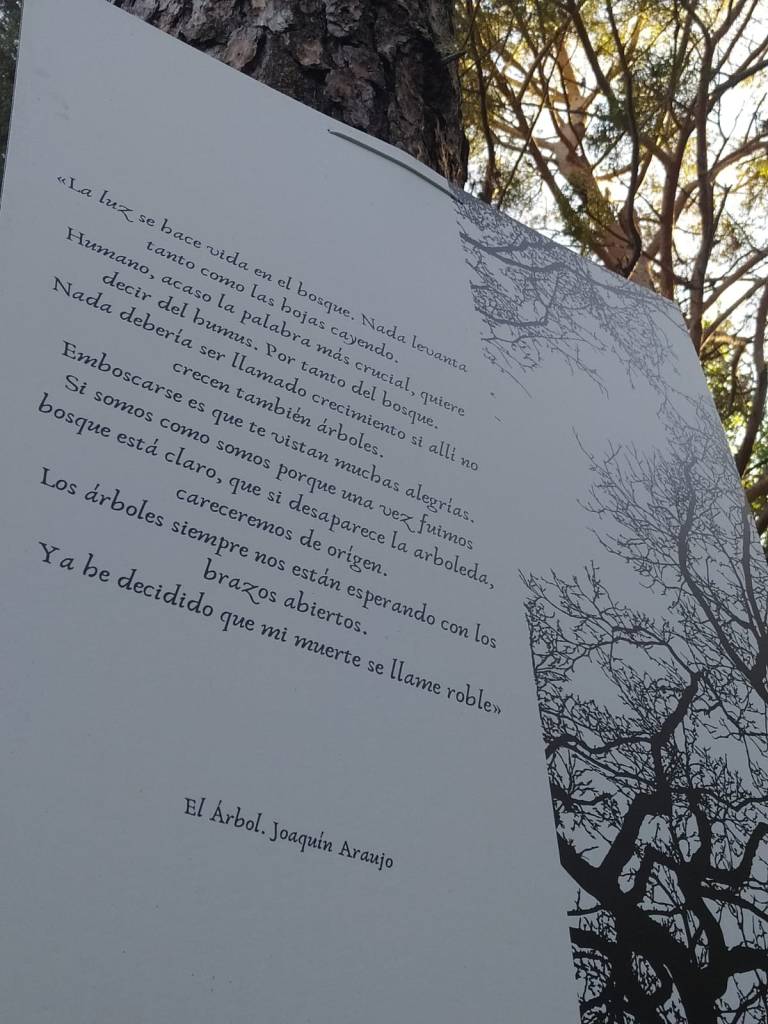 «La luz se hace vida en el bosque. Nada levanta
tanto como las hojas cayendo.
Humano, acaso la palabra más crucial, quiere
decir del humus. Por tanto del bosque.
Nada debería ser llamado crecimiento si allí no
crecen también árboles.
Emboscarse es que te vistan muchas alegrías.
Si somos como somos porque una vez fuimos
bosque está claro, que si desaparece la arboleda,
careceremos de orígen.
Los árboles siempre nos están esperando con los
brazos abiertos.
Ya he decidido que mi muerte se llame roble»
El Árbol. Joaquín Araujo